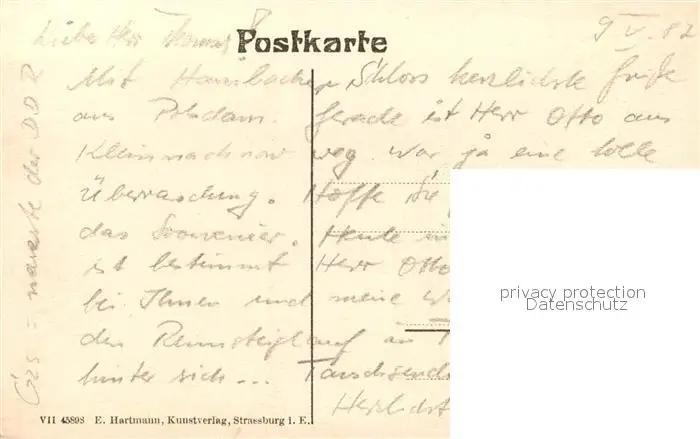 Lieber Herr Thomas!
Postkarte
9 V. 82
Mit Hambacher Schloss herzlichste Grüße
aus Potsdam. Gerade ist Herr Otto aus
Kleinmachnow weg. War ja eine tolle
Überraschung. Hoffe Sie
das Souvenier. Heute
ist bestimmt Herr Otto
bei Ihnen und meine
den Rennsteiglauf an
hinter sich... Tauschsend
Herzlichst
= neueste der DDR
privacy protection
Datenschutz
VII 45898 E. Hartmann, Kunstverlag, Strassburg i. E.